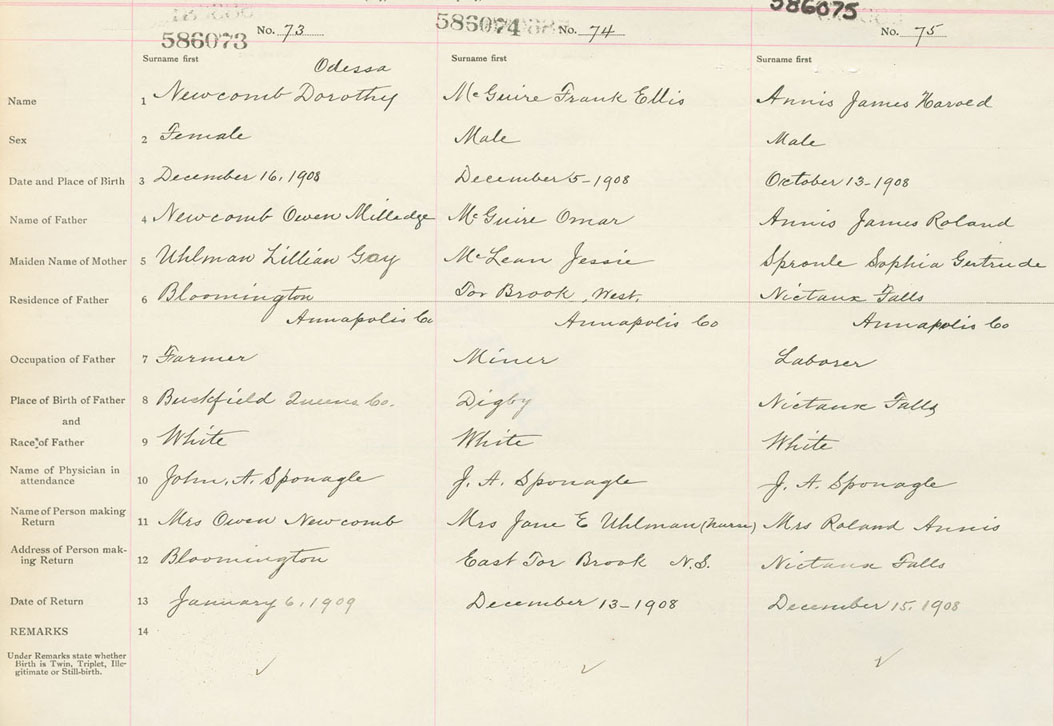 586073 No. 73 586074 No. 74 586075 No. 75
Surname first Surname first Surname first
Odessa
Name 1 Newcomb Dorothy McGuire Frank Ellis Annis James Harold
Sex 2 Female Male Male
Date and Place of Birth 3 December 16, 1908 December 5-1908 October 13-1908
Name of Father 4 Newcomb Owen Milledge McGuire Omar Annis James Roland
Maiden Name of Mother 5 Uhlman Lillian Gay McLean Jessie Sproule Sophia Gertrude
Residence of Father 6 Bloomington Tor Brook, West, Nictaux Falls
Annapolis Co Annapolis Co Annapolis Co
Occupation of Father 7 Farmer Miner Laborer
Place of Birth of Father 8 Buckfield Queens Co. Digby Nictaux Falls
and
Race of Father 9 White White White
Name of Physician in
attendance 10 John. A. Sponagle J. A. Sponagle J. A. Sponagle
Name of Person making
Return 11 Mrs Owen Newcomb Mrs Jane E Uhlman (nurse) Mrs Roland Annis
Address of Person mak-
ing Return 12 Bloomington East Tor Brook N.S. Nictaux Falls
Date of Return 13 January 6, 1909 December 13-1908 December 15, 1908
REMARKS 14
Under Remarks state whether
Birth is Twin, Triplet, Ille-
gitimate or Still-birth.